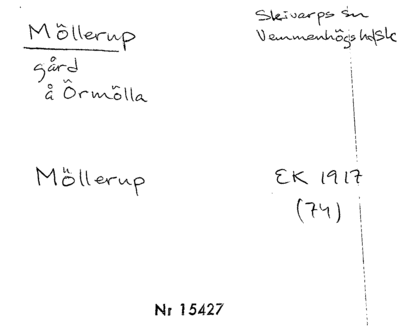 Möllerup
Skivarps sn
Vemmenhögs hd Sk
gård
å Örmölla
Möllerup
EK 1917
(74)
Nr 15427